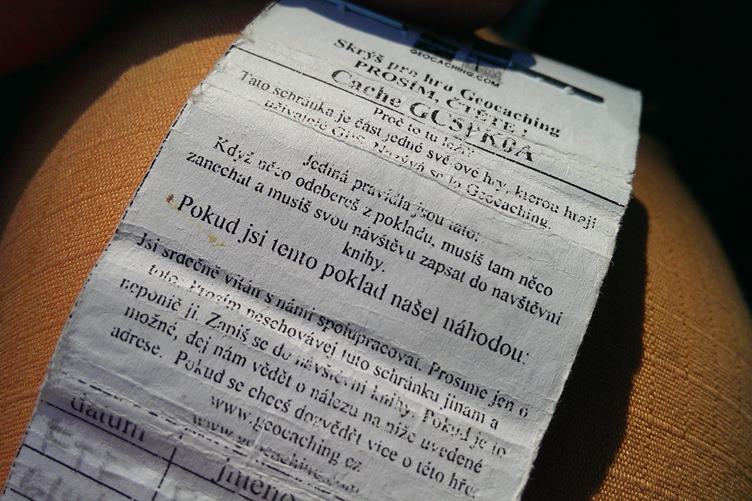 GEOCACHING.COM
Skrýš pro hru Geocaching
PROSÍM, ČTĚTE !
Cache
Proč to tu leží?
Tato schránka je část jedné světové hry, kterou hrají
uživatelé GPS. Nazývá se to Geocaching.
Jediná pravidla jsou tato:
Když něco odebereš z pokladu, musíš tam něco
zanechat a musíš svou návštěvu zapsat do navštěvní
knihy.
Pokud jsi tento poklad našel náhodou:
Jsi srdečně vítán s námi spolupracovat. Prosíme jen o
toto: Prosím neschovávej tuto schránku jinam a
neponič ji. Zapiš se do návštěvní knihy. Pokud je to
možné, dej nám vědět o nálezu na níže uvedené
adrese. Pokud se chceš dozvědět více o této hře,
www.geocaching.cz
www.geocaching.com
datum jméno